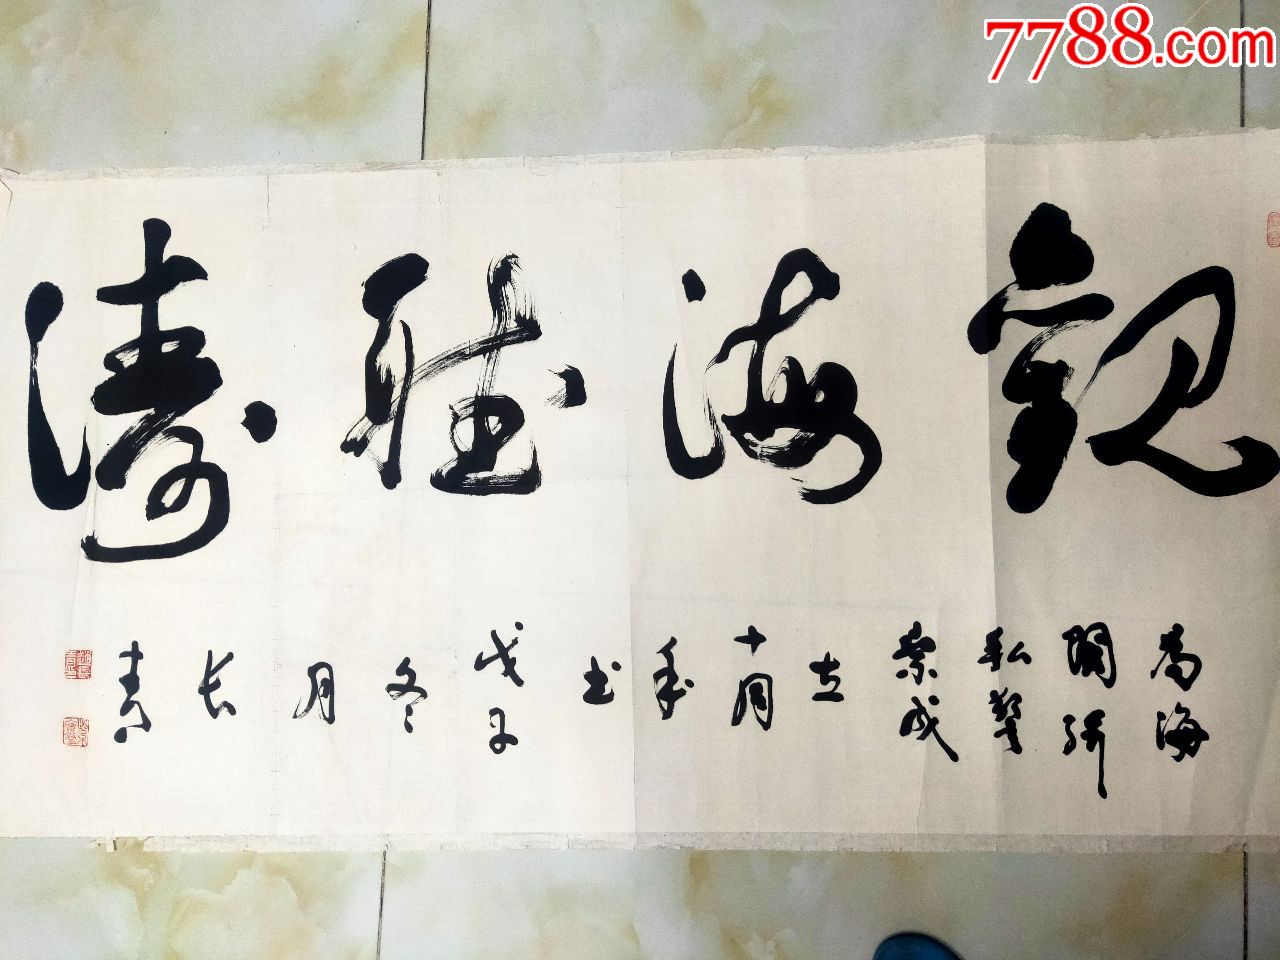 7788.com
觀海聽濤
為海
關
弘
成立
十周
年
書
戊子
冬
月
长
青